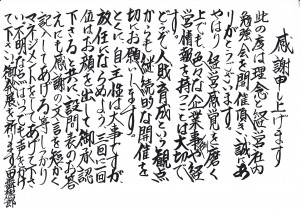 感謝申し上げます
此の度は理念と経営社内
勉強会を開催頂き誠にあ
りがとうございます。
やはり経営感覚を磨く
上でも、色々な企業事や経
営情報を持つことは大切で、
どうぞ人財育成という観点
からも継続的な開催を
切にお願いします。
とくに自主性は大事ですが
放任にならぬよう三回に一回
位はお顔を出して御承認
下さると共に、設問表のお答
えにも感謝の文言を短かく
記入してあげる等の
マネジメントをしてあげて下さ
い。不明な点はいつでも声をかけ
て下さい。御発展を祈ります。